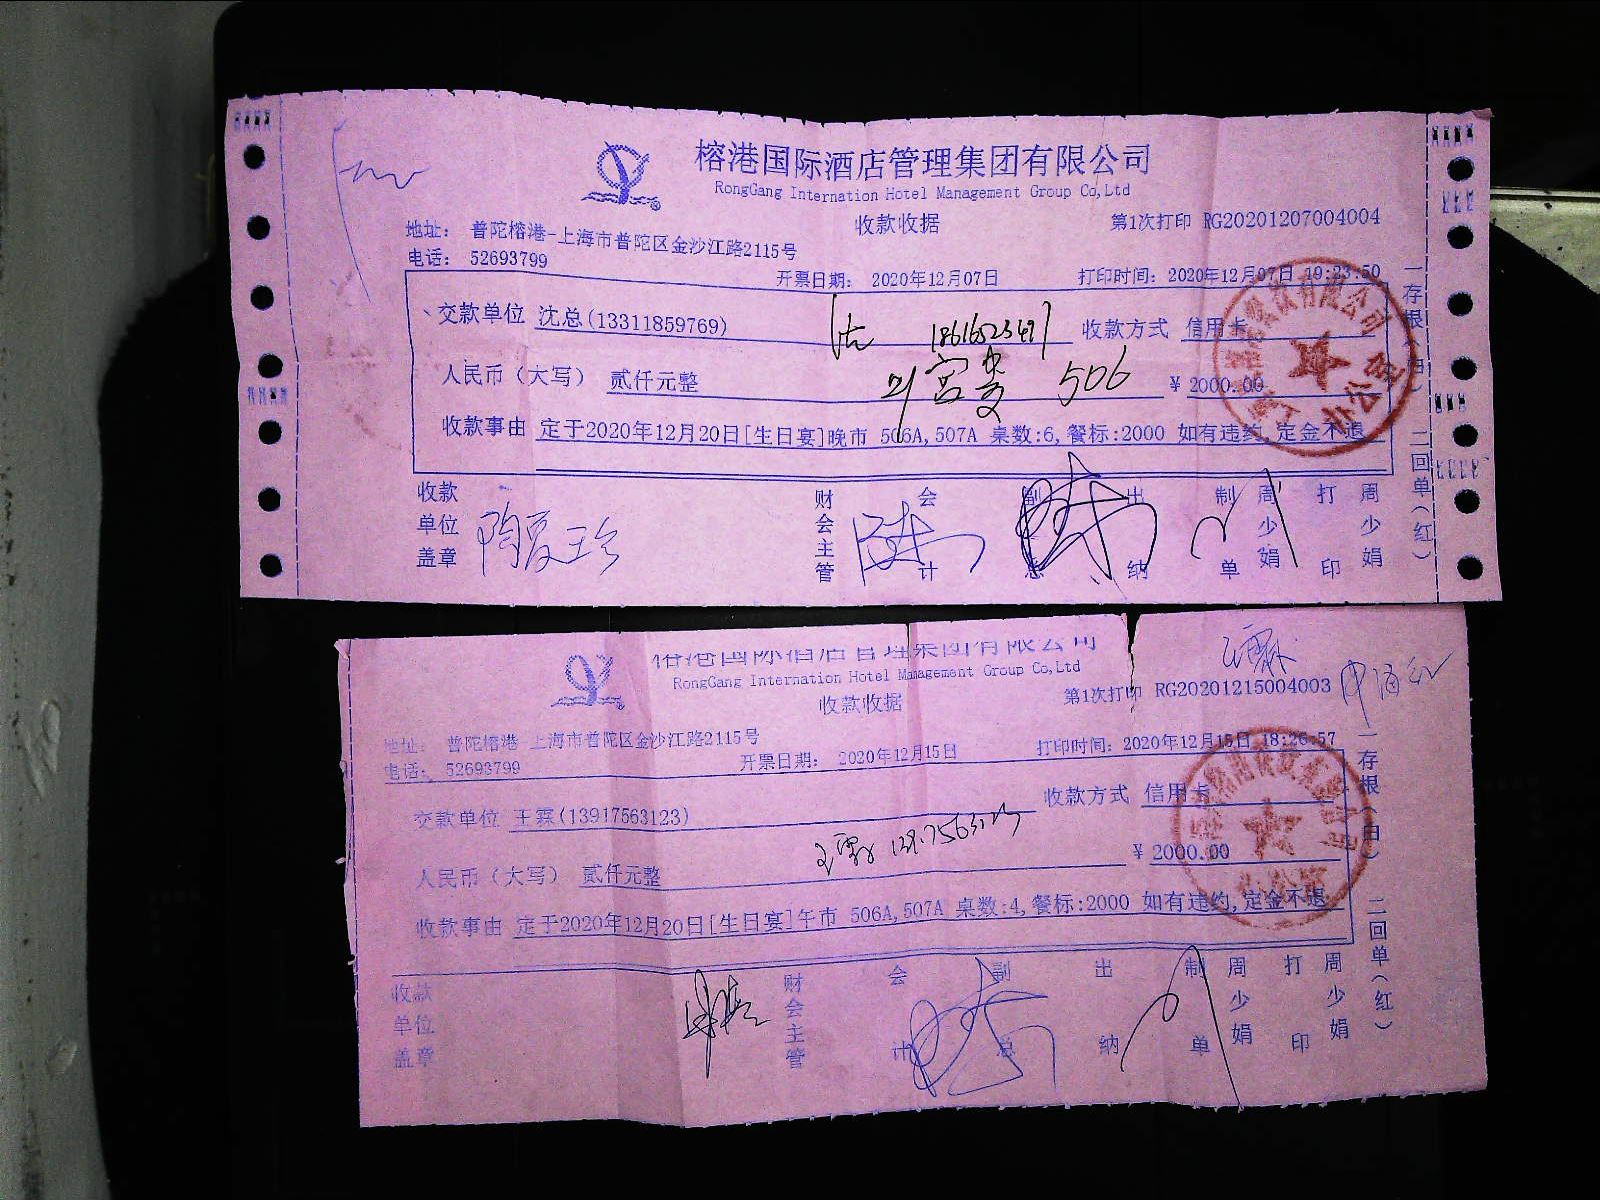 榕港国际酒店管理集团有限公司
RongGang Internation Hotel Management Group Co,Ltd
收款收据
第1次打印 RG20201207004004
地址: 普陀榕港-上海市普陀区金沙江路2115号
电话: 52693799
开票日期: 2020年12月07日
打印时间: 2020年12月07日 19:23:50
交款单位 沈总(13311859769)
收款方式 信用卡
人民币（大写） 贰仟元整
506
¥ 2000.00
收款事由 定于2020年12月20日[生日宴]晚市 506A,507A 桌数:6,餐标:2000 如有违约,定金不退
收款单位盖章
陶夏珍
财会主管
会计
副总
出纳
制单
周少娟
打印
周少娟
一存根(白) 二回单(红)
榕港国际酒店管理集团有限公司
RongGang Internation Hotel Management Group Co,Ltd
收款收据
第1次打印 RG20201215004003
地址: 普陀榕港-上海市普陀区金沙江路2115号
电话: 52693799
开票日期: 2020年12月15日
打印时间: 2020年12月15日 18:26:57
交款单位 王霖(13917563123)
收款方式 信用卡
王霖 13917563123
人民币（大写） 贰仟元整
¥ 2000.00
收款事由 定于2020年12月20日[生日宴]午市 506A,507A 桌数:4,餐标:2000 如有违约,定金不退
收款单位盖章
财会主管
会计
副总
出纳
制单
周少娟
打印
周少娟
一存根(白) 二回单(红)